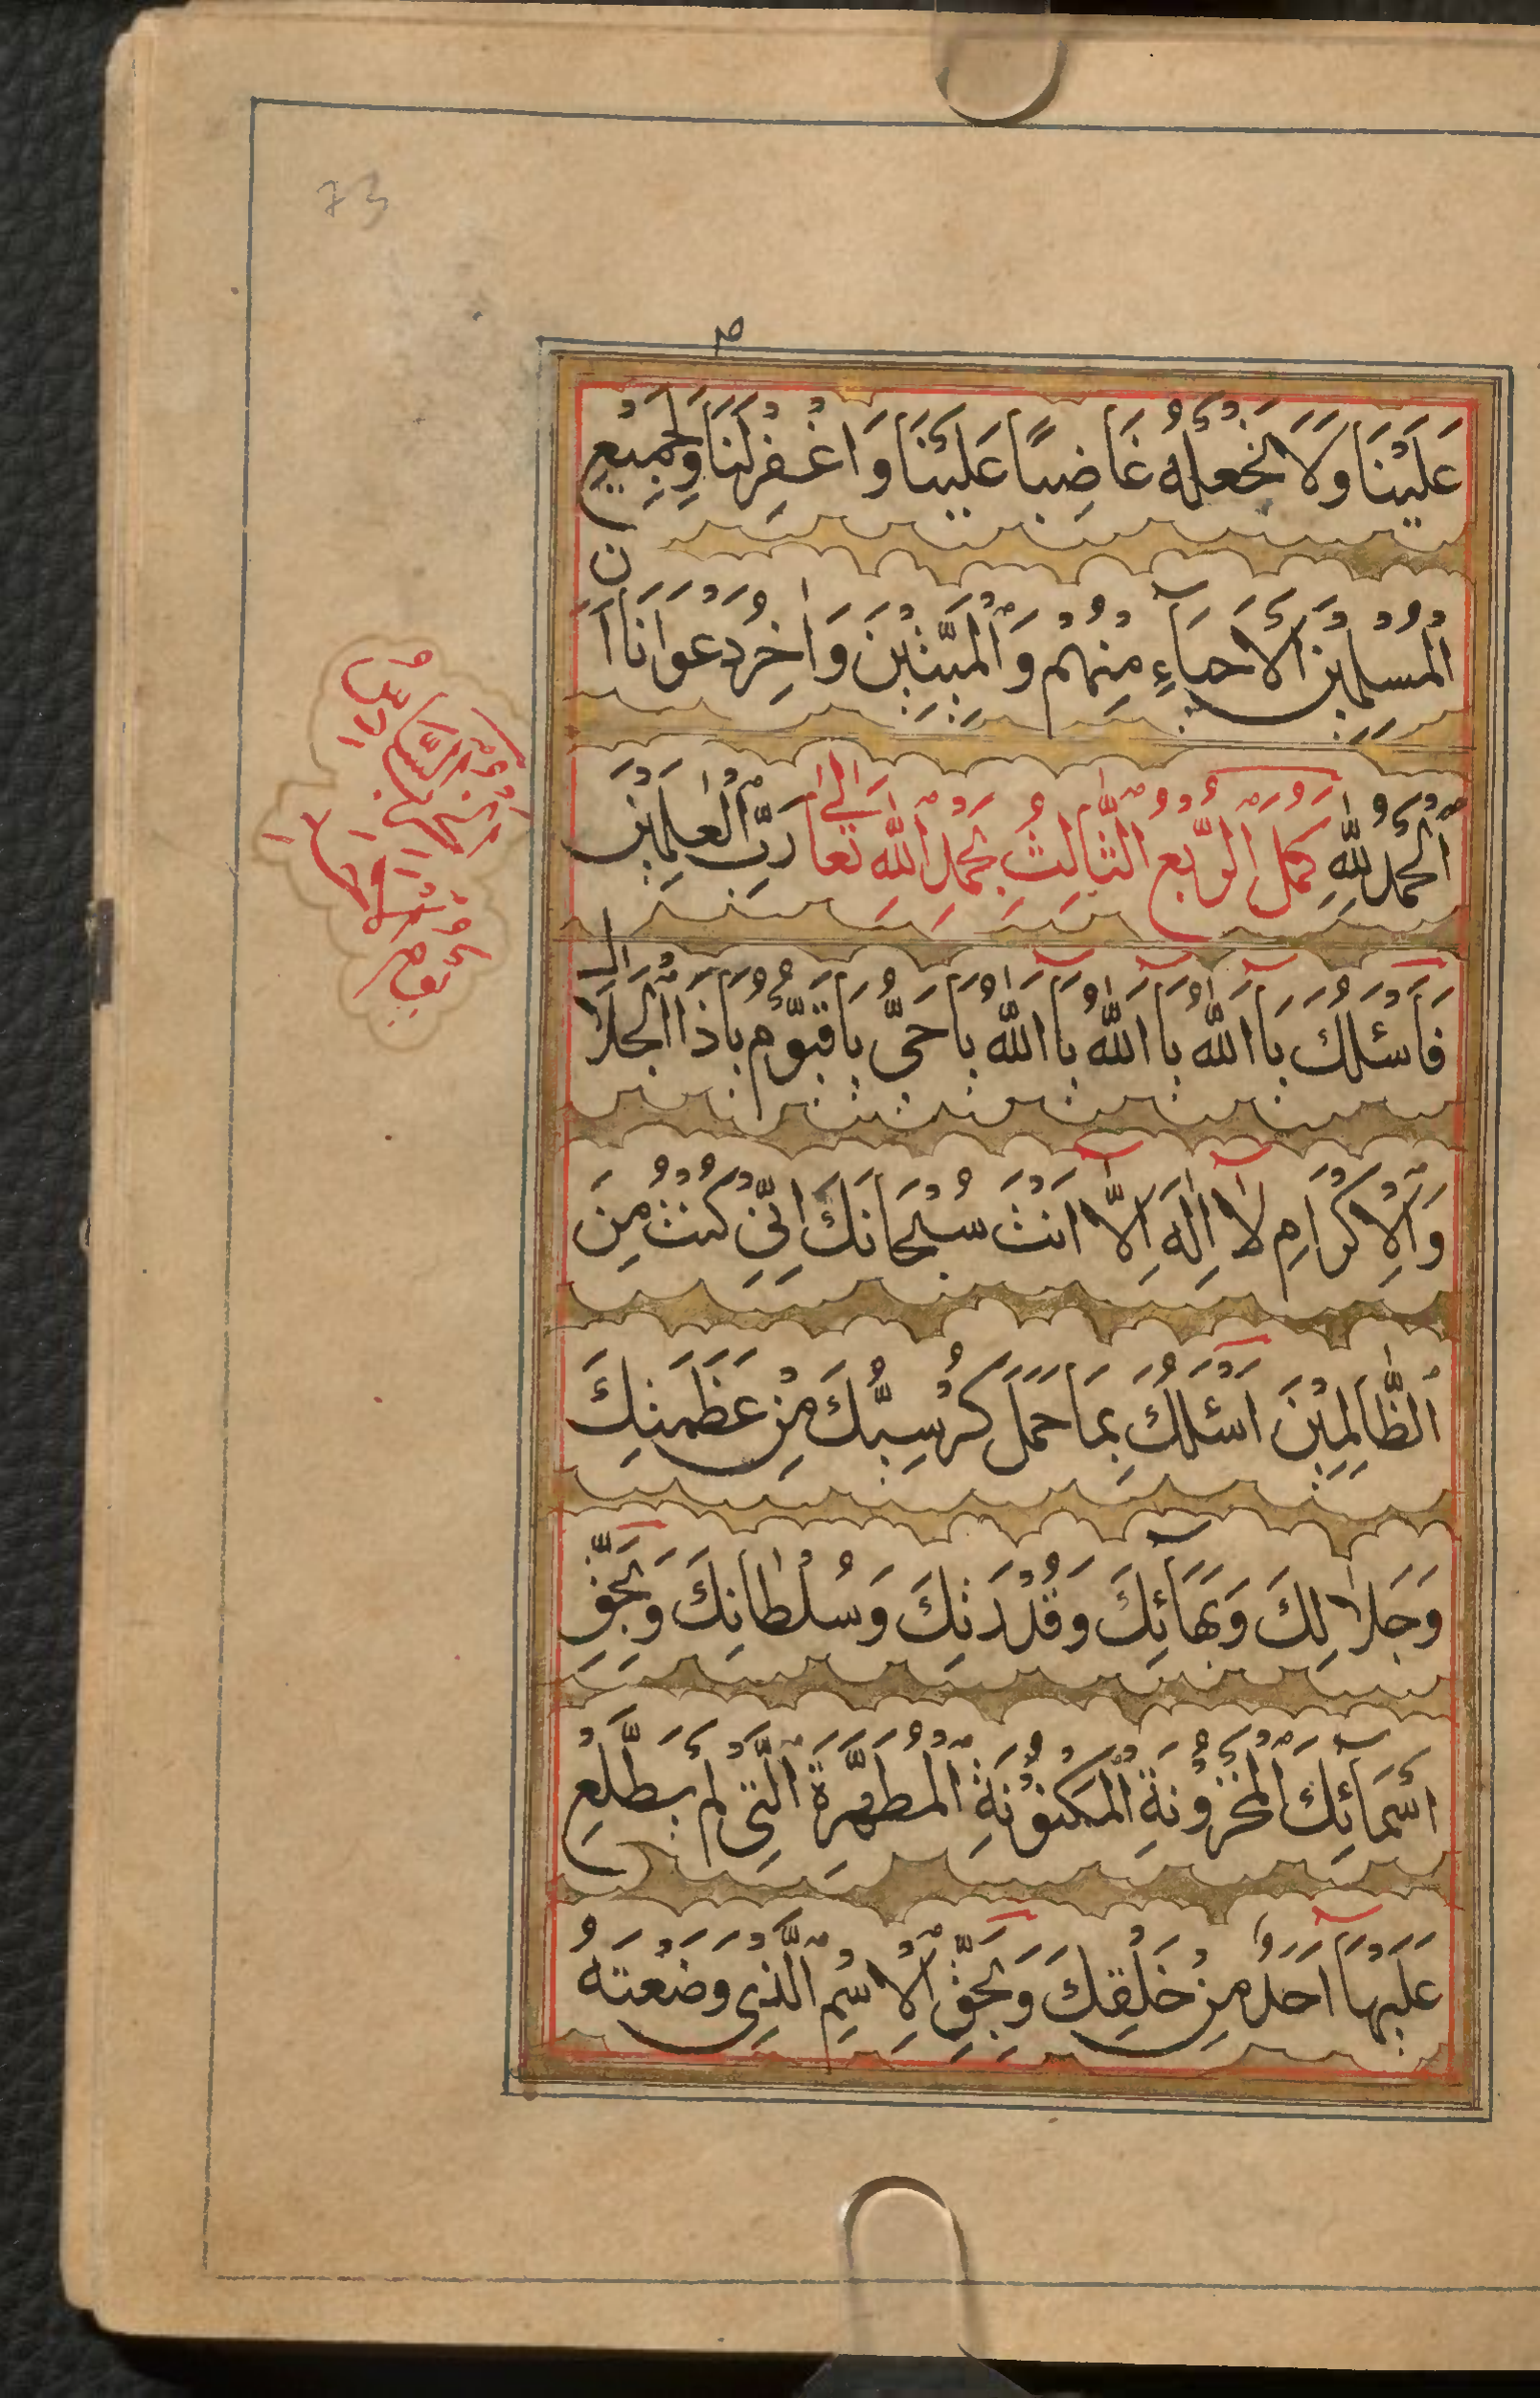 73
عَلَيْنَا وَلَا تَجْعَلْهُ غَاضِبًا عَلَيْنَا وَاغْفِرْلَنَا وَلِجَمِيْعِ
الْمُسْلِمِيْنَ الْأَحْيَآءِ مِنْهُمْ وَالْمَيِّتِيْنَ وَاٰخِرُ دَعْوَانَا اَنِ
الْحَمْدُ لِلّٰهِ كَمُلَ الرُّبْعُ الثَّالِثُ بِحَمْدِ اللّٰهِ تَعَالٰى رَبِّ الْعٰلَمِيْنَ
فَاَسْئَلُكَ يَا اَللّٰهُ يَا اَللّٰهُ يَا اَللّٰهُ يَا حَيُّ يَا قَيُّوْمُ يَا ذَا الْجَلَالِ
وَالْاِكْرَامِ لَا اِلٰهَ اِلَّا اَنْتَ سُبْحَانَكَ اِنِّيْ كُنْتُ مِنَ
الظَّالِمِيْنَ اَسْئَلُكَ بِمَا حَمَلَ كُرْسِيُّكَ مِنْ عَظَمَتِكَ
وَجَلَالِكَ وَبَهَآئِكَ وَقُدْرَتِكَ وَسُلْطَانِكَ وَبِحَقِّ
اَسْمَآئِكَ الْمَخْزُوْنَةِ الْمَكْنُوْنَةِ الْمُطَهَّرَةِ الَّتِيْ لَمْ يَطَّلِعْ
عَلَيْهَا اَحَدٌ مِنْ خَلْقِكَ وَبِحَقِّ الْاِسْمِ الَّذِيْ وَضَعْتَهُ